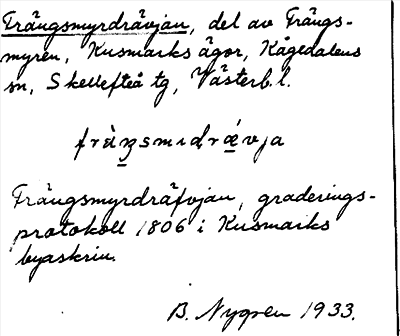 Trängsmyrdrävjan, del av Trängs-
myren, Kusmarks ägor, Kågedalens
sn, Skellefteå tg, Västerb. l.
Trängsmyrdräfvjan, graderings-
protokoll 1806 i Kusmarks
byaskrin.
B. Nygren 1933.